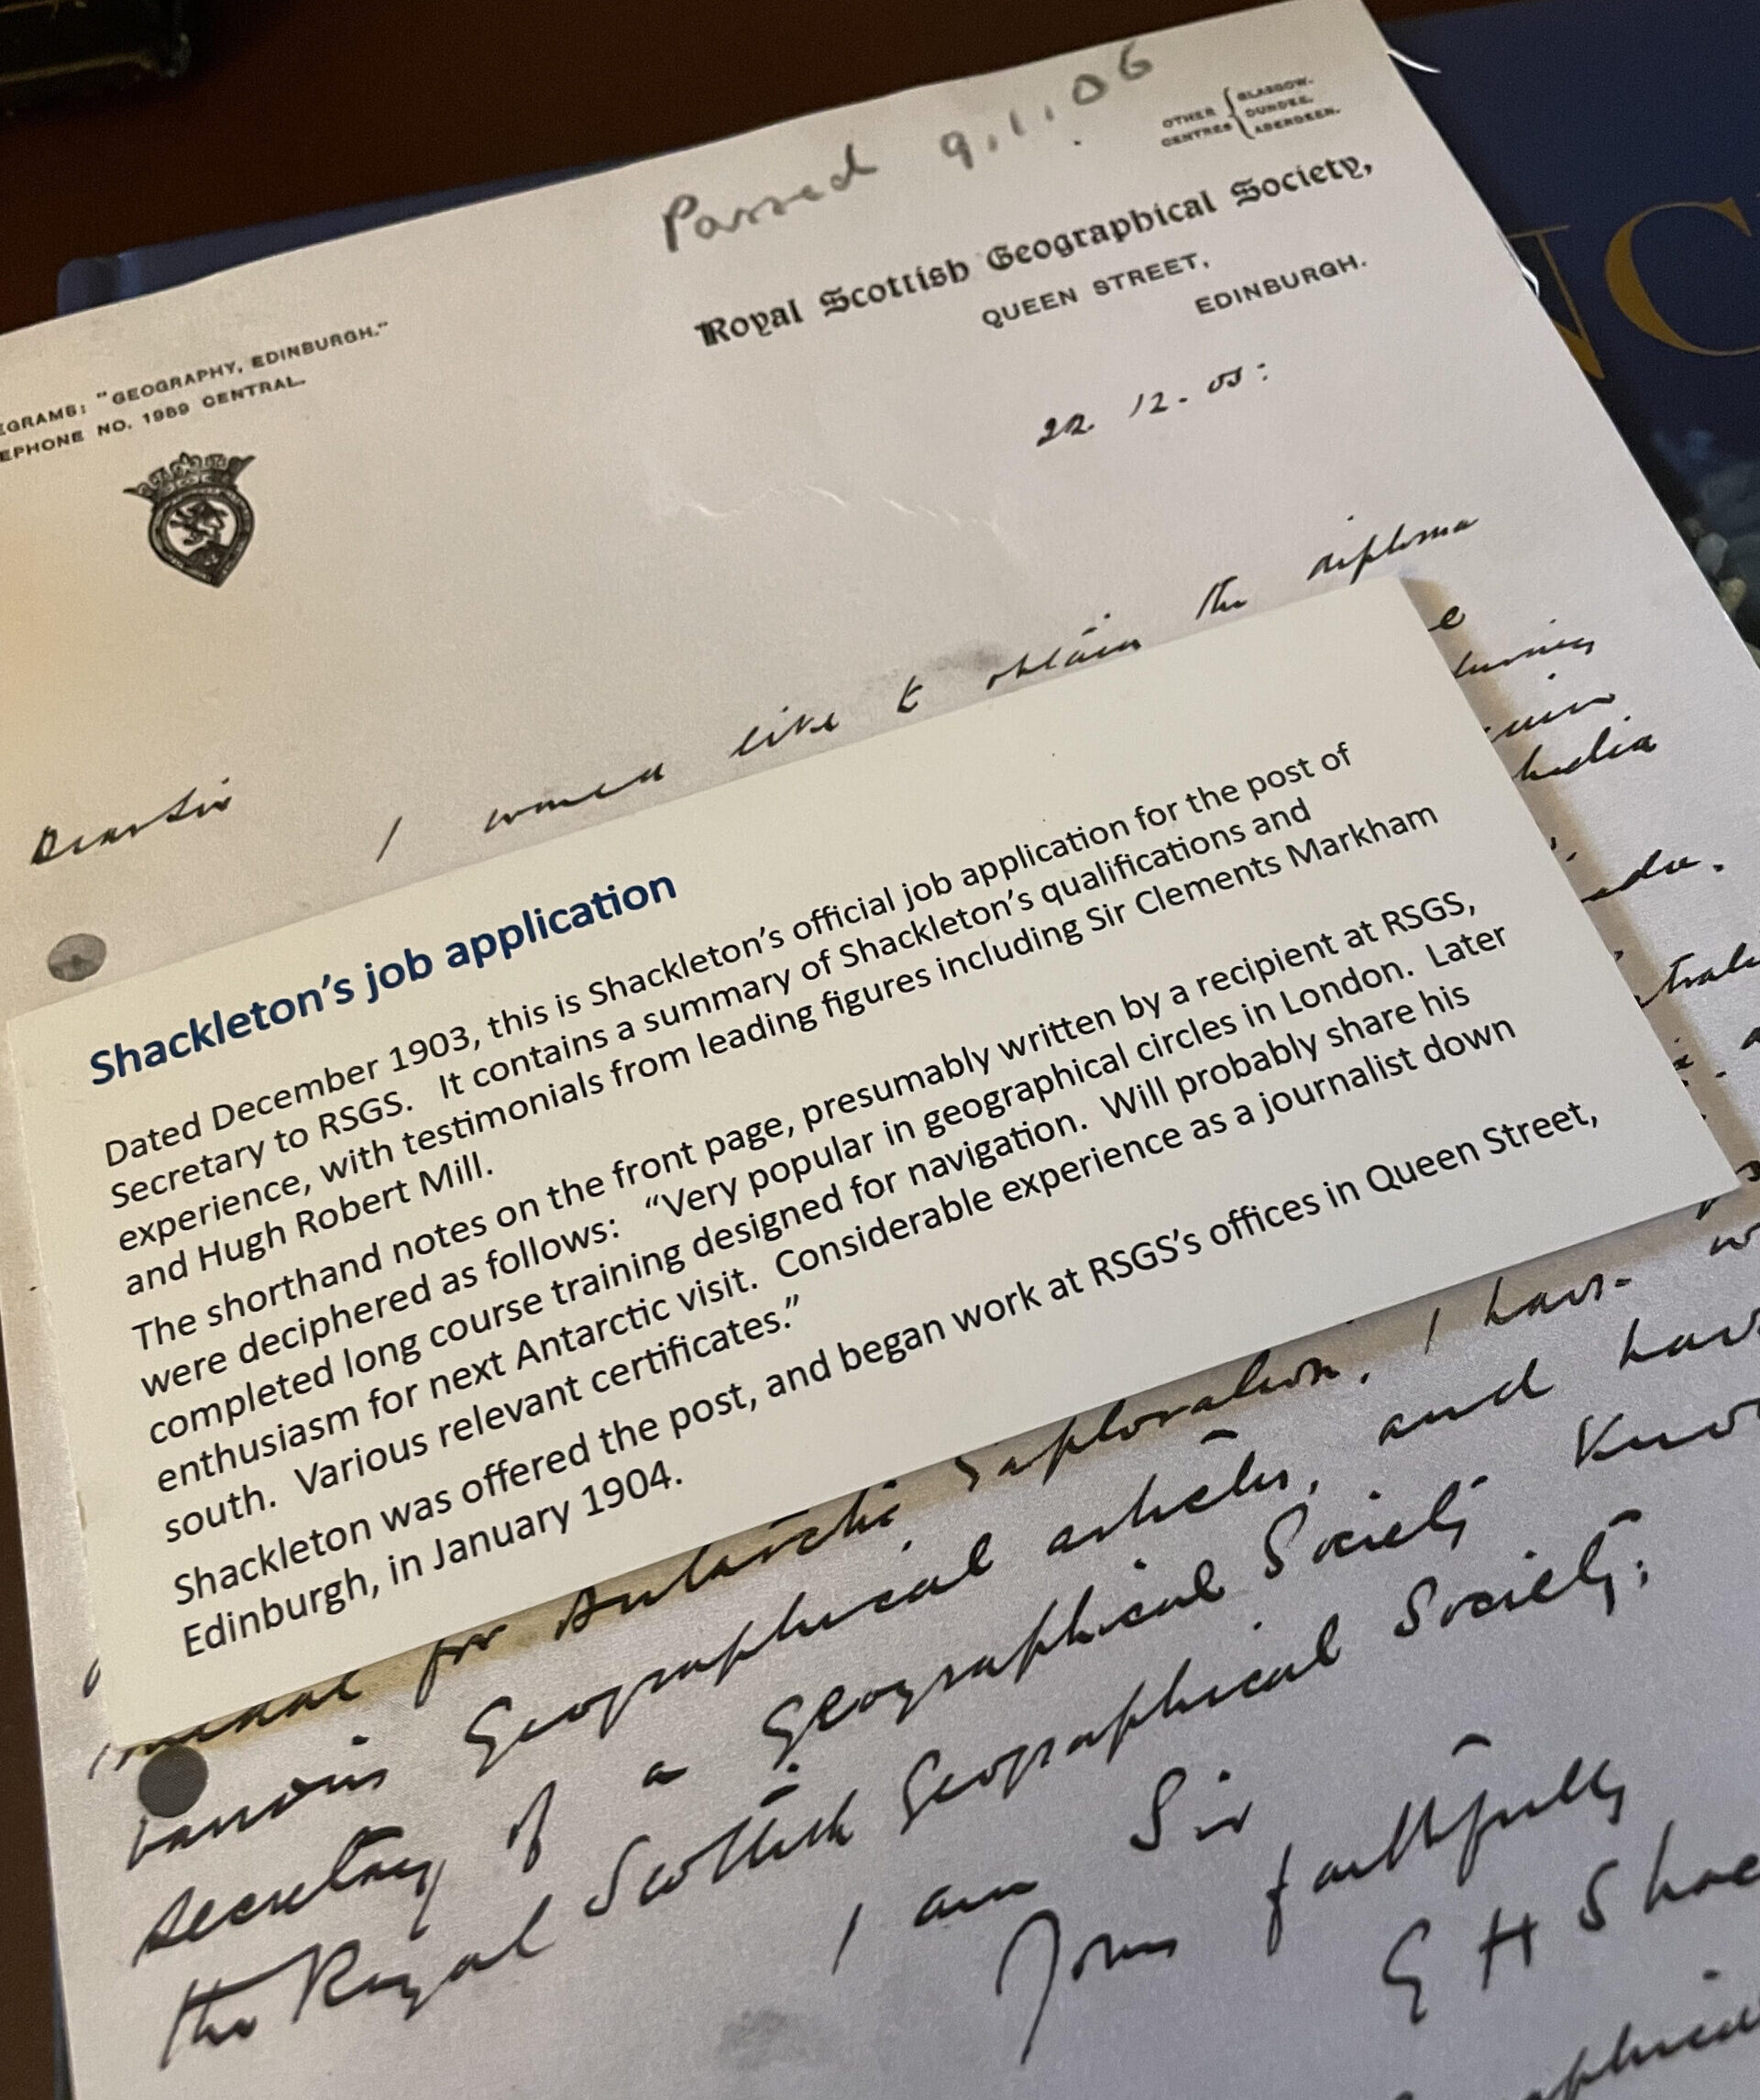 Passed 9.1.06
OTHER CENTRES { GLASGOW. DUNDEE. ABERDEEN.
Royal Scottish Geographical Society,
QUEEN STREET,
EDINBURGH.
EGRAMS: "GEOGRAPHY, EDINBURGH."
EPHONE NO. 1989 CENTRAL.
22 12. 05:
Dear Sir I would like to obtain the diploma
Shackleton's job application
Dated December 1903, this is Shackleton's official job application for the post of
Secretary to RSGS. It contains a summary of Shackleton's qualifications and
experience, with testimonials from leading figures including Sir Clements Markham
and Hugh Robert Mill.
The shorthand notes on the front page, presumably written by a recipient at RSGS,
were deciphered as follows: "Very popular in geographical circles in London. Later
completed long course training designed for navigation. Will probably share his
enthusiasm for next Antarctic visit. Considerable experience as a journalist down
south. Various relevant certificates."
Shackleton was offered the post, and began work at RSGS's offices in Queen Street,
Edinburgh, in January 1904.
medal for Antarctic Exploration. I have
various Geographical articles, and have
Secretary of a Geographical Society
the Royal Scottish Geographical Society:
I am Sir
Yours faithfully
E H Shac
NC